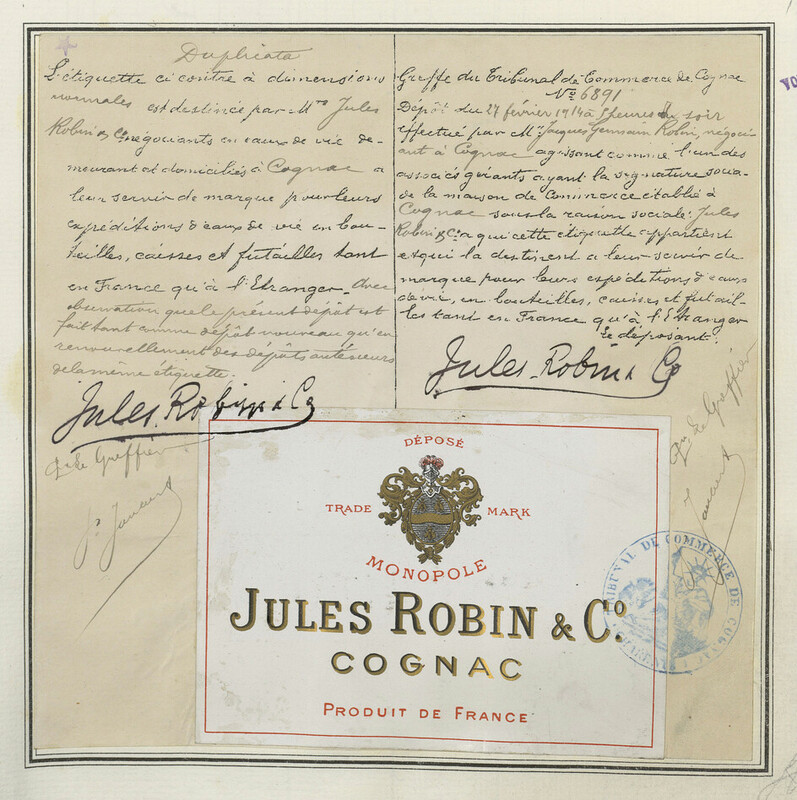 Duplicata
L'étiquette ci contre à dimensions
normales est destinée par Mrs Jules
Robin & Co négociants en eaux de vie de-
meurant et domiciliés à Cognac a
leur servir de marque pour leurs
expéditions d'eaux de vie en bou-
teilles, caisses et futailles tant
en France qu'à l'Etranger. Avec
observation que le présent dépôt est
fait tant comme dépôt nouveau qu'en
renouvellement des dépôts antérieurs
de la même étiquette.
Jules Robin & Co
Le Greffier
Greffe du Tribunal de Commerce de Cognac
No 6891
Dépôt du 27 février 1914 à 5 heures du soir
effectué par Mr Jacques Germain Robin, négoci
ant à Cognac agissant comme l'un des
associés gérants ayant la signature socia-
le de la maison de Commerce établie à
Cognac sous la raison sociale: Jules
Robin & Co a qui cette étiquette appartient
et qui la destinent a leur servir de
marque pour leurs expéditions d'eaux
de vie, en bouteilles, caisses et futail-
les tant en France qu'à l'Etranger
Le déposant.
Jules Robin & Co
Le Greffier
DÉPOSÉ
TRADE MARK
MONOPOLE
JULES ROBIN & Co.
COGNAC
PRODUIT DE FRANCE
TRIBUNAL DE COMMERCE DE COGNAC